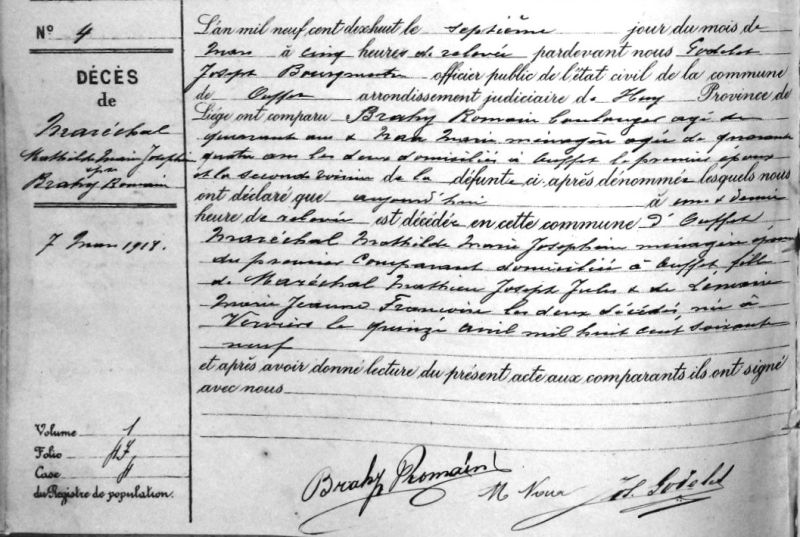 N° 4
DÉCÈS
de
Maréchal
Mathilde Marie Josephine
Brahy Romain
7 Mars 1918.
Volume 1
Folio
Case
du Registre de population.
L'an mil neuf cent dix huit le septième jour du mois de
Mars à cinq heures de relevée pardevant nous Godelet
Joseph Bourgmestre officier public de l'état civil de la commune
de Ouffet arrondissement judiciaire de Huy Province de
Liége ont comparu Brahy Romain boulanger agé de
quarante ans & Marie ménagère agée de quarante
quatre ans les deux domiciliés à Ouffet le premier époux
et la seconde voisine de la défunte ci-après dénommée lesquels nous
ont déclaré que aujourd'hui à une & demie
heure de relevée est décédée en cette commune d'Ouffet
Maréchal Mathilde Marie Josephine ménagère épouse
du premier Comparant domiciliée à Ouffet, fille
de Maréchal Mathieu Joseph Jules & de Lemaire
Marie Jeanne Françoise les deux décédés, née à
Verviers le quinze avril mil huit cent soixante
neuf
et après avoir donné lecture du présent acte aux comparants ils ont signé
avec nous
Brahy Romain M Noua Js. Godelet